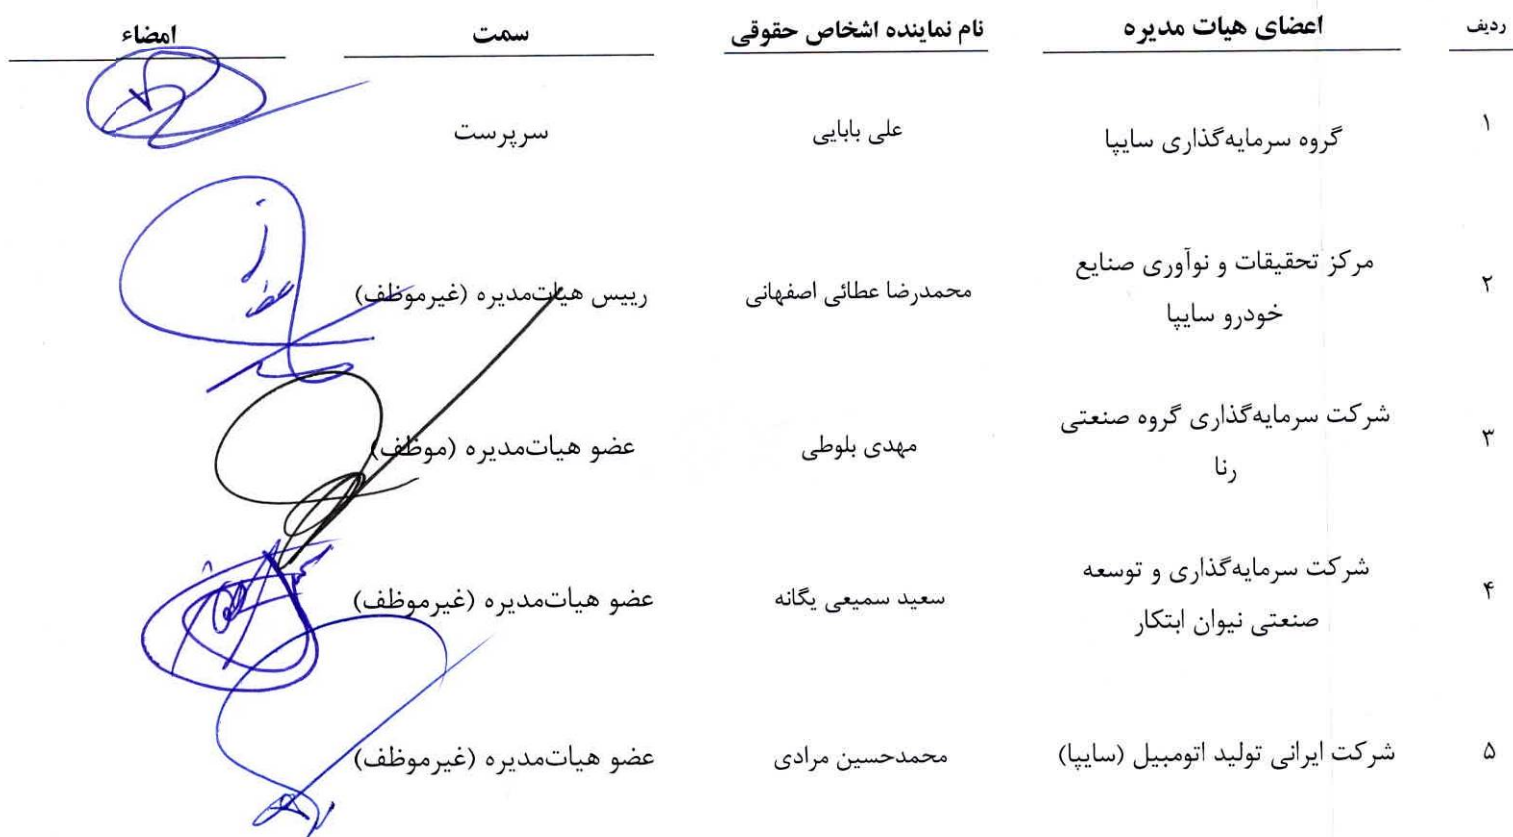 ردیف اعضای هیات مدیره نام نماینده اشخاص حقوقی سمت امضاء
۱ گروه سرمایه‌گذاری سایپا علی بابایی سرپرست
۲ مرکز تحقیقات و نوآوری صنایع خودرو سایپا محمدرضا عطائی اصفهانی رییس هیات‌مدیره (غیرموظف)
۳ شرکت سرمایه‌گذاری گروه صنعتی رنا مهدی بلوطی عضو هیات‌مدیره (موظف)
۴ شرکت سرمایه‌گذاری و توسعه صنعتی نیوان ابتکار سعید سمیعی یگانه عضو هیات‌مدیره (غیرموظف)
۵ شرکت ایرانی تولید اتومبیل (سایپا) محمدحسین مرادی عضو هیات‌مدیره (غیرموظف)